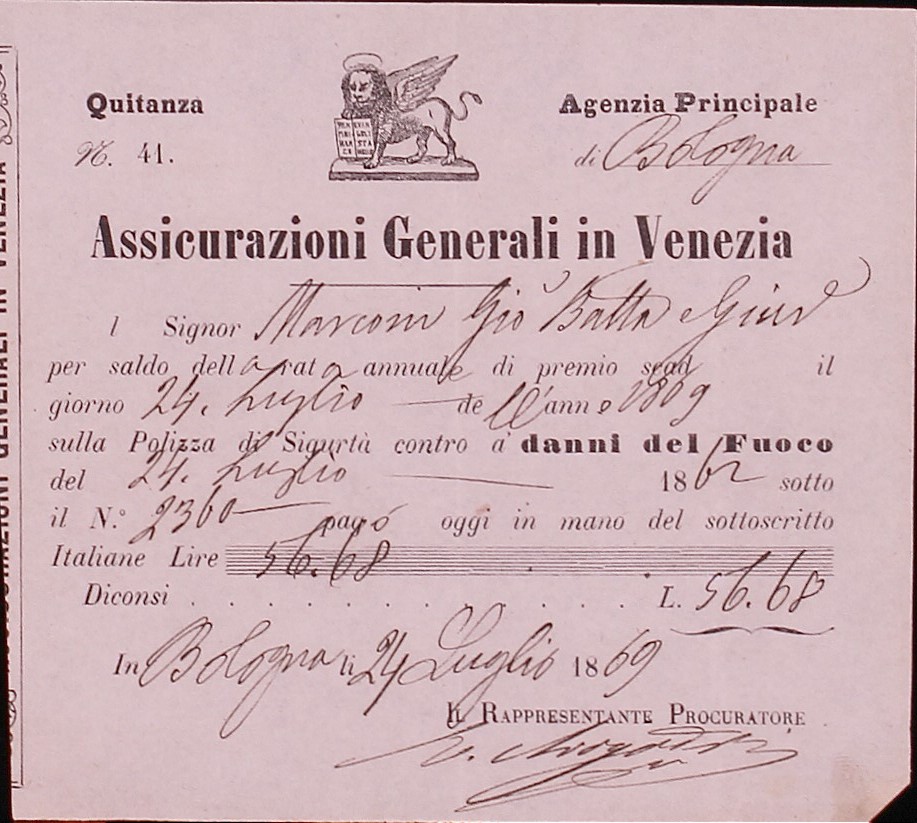 Quitanza
N. 41.
Agenzia Principale
di Bologna
Assicurazioni Generali in Venezia
l Signor Marconi Gio Batta e
per saldo della rata annuale di premio scad il
giorno 24. Luglio dell'anno 1869
sulla Polizza di Sigurtà contro a' danni del Fuoco
del 24. Luglio 1862 sotto
il N.° 2360 pagò oggi in mano del sottoscritto
Italiane Lire 56.68
Diconsi . . . . . . . . . . . . . L. 56.68
In Bologna li 24 Luglio 1869
IL RAPPRESENTANTE PROCURATORE
GENERALI IN VENEZIA